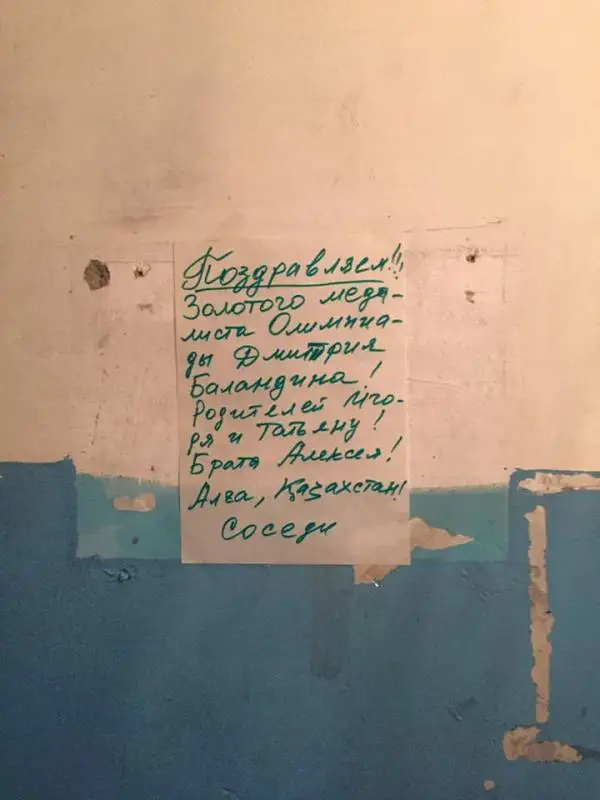 Поздравляем!!!
Золотого меда-
листа Олимпиа-
ды Дмитрия
Баландина!
Родителей Иго-
ря и Татьяну!
Брата Алексея!
Алга, Қазахстан!
Соседи